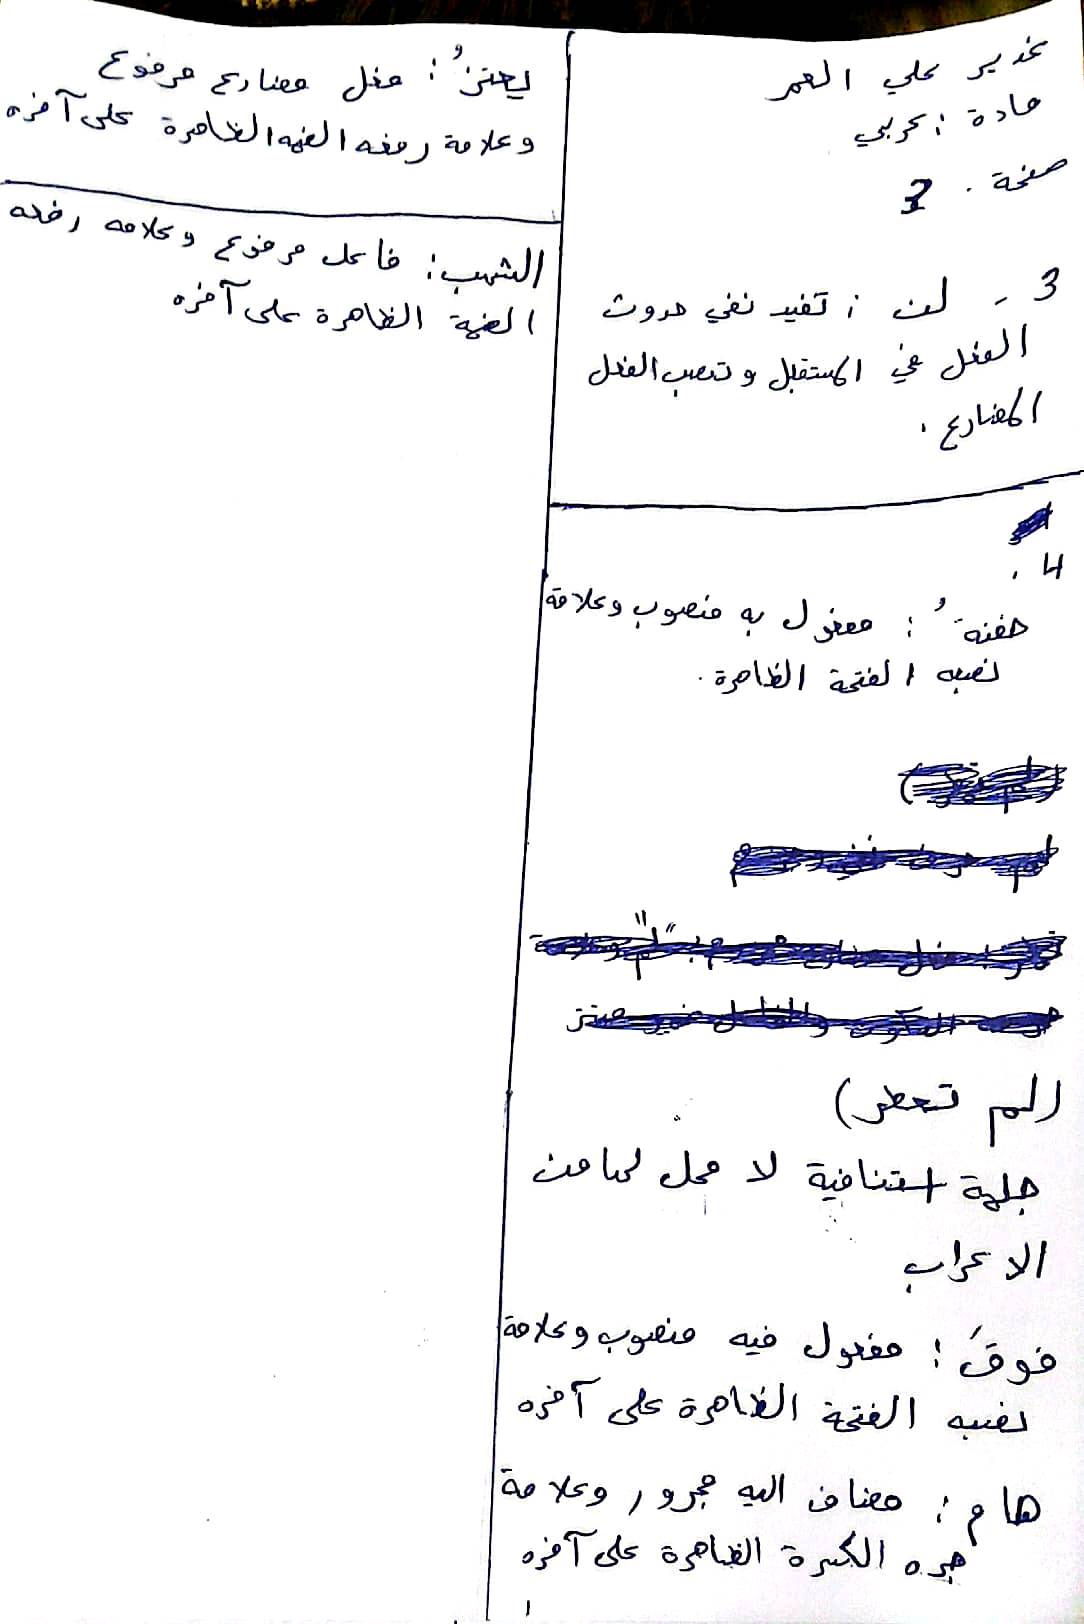 غدير علي العمر
مادة : عربي
صفحة . 3
3 - لن : تفيد نفي حدوث
الفعل في المستقبل و تنصب الفعل
المضارع .
4 .
حفنةَ ُ : مفعول به منصوب وعلامة
نصبه الفتحة الظاهرة .
(لم تمطر)
جملة استنافية لا محل لها من
الاعراب
فوقَ : مفعول فيه منصوب وعلامة
نصبه الفتحة الظاهرة على آخره
هام : مضاف اليه مجرور وعلامة
جره الكسرة الظاهرة على آخره
يعتزُ : فعل مضارع مرفوع
وعلامة رفعه الضمه الظاهرة على آخره
الشهب : فاعل مرفوع وعلامه رفعه
الضمة الظاهرة على آخره